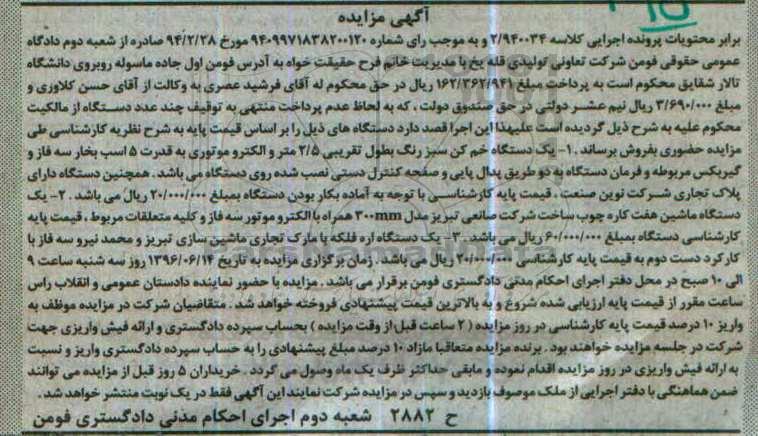 آگهی مزایده
برابر محتویات پرونده اجرایی کلاسه ۲/۹۴۰۰۳۴ و به موجب رای شماره ۹۴۰۹۹۷۱۸۳۸۲۰۰۱۲۰ مورخ ۹۴/۲/۲۸ صادره از شعبه دوم دادگاه
عمومی حقوقی فومن شرکت تعاونی تولیدی قله یخ با مدیریت خانم فرح حقیقت خواه به آدرس فومن اول جاده ماسوله روبروی دانشگاه
تالار شقایق محکوم است به پرداخت مبلغ ۱۶۲/۳۶۲/۹۴۱ ریال در حق محکوم له آقای فرشید عصری به وکالت از آقای حسن کلاوری و
مبلغ ۳/۶۹۰/۰۰۰ ریال نیم عشر دولتی در حق صندوق دولت ، که به لحاظ عدم پرداخت منتهی به توقیف چند عدد دستگاه از مالکیت
محکوم علیه به شرح ذیل گردیده است علیهذا این اجرا قصد دارد دستگاه های ذیل را بر اساس قیمت پایه به شرح نظریه کارشناسی طی
مزایده حضوری بفروش برساند . ۱- یک دستگاه خم کن سبز رنگ بطول تقریبی ۲/۵ متر و الکترو موتوری به قدرت ۵ اسب بخار سه فاز و
گیربکس مربوطه و فرمان دستگاه به دو طریق پدال پایی و صفحه کنترل دستی نصب شده روی دستگاه می باشد . همچنین دستگاه دارای
پلاک تجاری شرکت نوین صنعت ، قیمت پایه کارشناسی با توجه به آماده بکار بودن دستگاه بمبلغ ۲۰/۰۰۰/۰۰۰ ریال می باشد . ۲- یک
دستگاه ماشین هفت کاره چوب ساخت شرکت صانعی تبریز مدل ۳۰۰mm همراه با الکترو موتور سه فاز و کلیه متعلقات مربوط ، قیمت پایه
کارشناسی دستگاه بمبلغ ۶۰/۰۰۰/۰۰۰ ریال می باشد . ۳- یک دستگاه اره فلکه با مارک تجاری ماشین سازی تبریز و محمد نیرو سه فاز با
کارکرد دست دوم به قیمت پایه کارشناسی ۲۰/۰۰۰/۰۰۰ ریال می باشد . زمان برگزاری مزایده به تاریخ ۱۳۹۶/۰۶/۱۴ روز سه شنبه ساعت ۹
الی ۱۰ صبح در محل دفتر اجرای احکام مدنی دادگستری فومن برقرار می باشد . مزایده با حضور نماینده دادستان عمومی و انقلاب راس
ساعت مقرر از قیمت پایه ارزیابی شده شروع و به بالاترین قیمت پیشنهادی فروخته خواهد شد . متقاضیان شرکت در مزایده موظف به
واریز ۱۰ درصد قیمت پایه کارشناسی در روز مزایده ( ۲ ساعت قبل از وقت مزایده ) بحساب سپرده دادگستری و ارائه فیش واریزی جهت
شرکت در جلسه مزایده خواهند بود . برنده مزایده متعاقبا مازاد ۱۰ درصد مبلغ پیشنهادی را به حساب سپرده دادگستری واریز و نسبت
به ارائه فیش واریزی در روز مزایده اقدام نموده و مابقی حداکثر ظرف یک ماه وصول می گردد . خریداران ۵ روز قبل از مزایده می توانند
ضمن هماهنگی با دفتر اجرایی از ملک موصوف بازدید و سپس در مزایده شرکت نمایند این آگهی فقط در یک نوبت منتشر خواهد شد .
ح ۲۸۸۲ شعبه دوم اجرای احکام مدنی دادگستری فومن